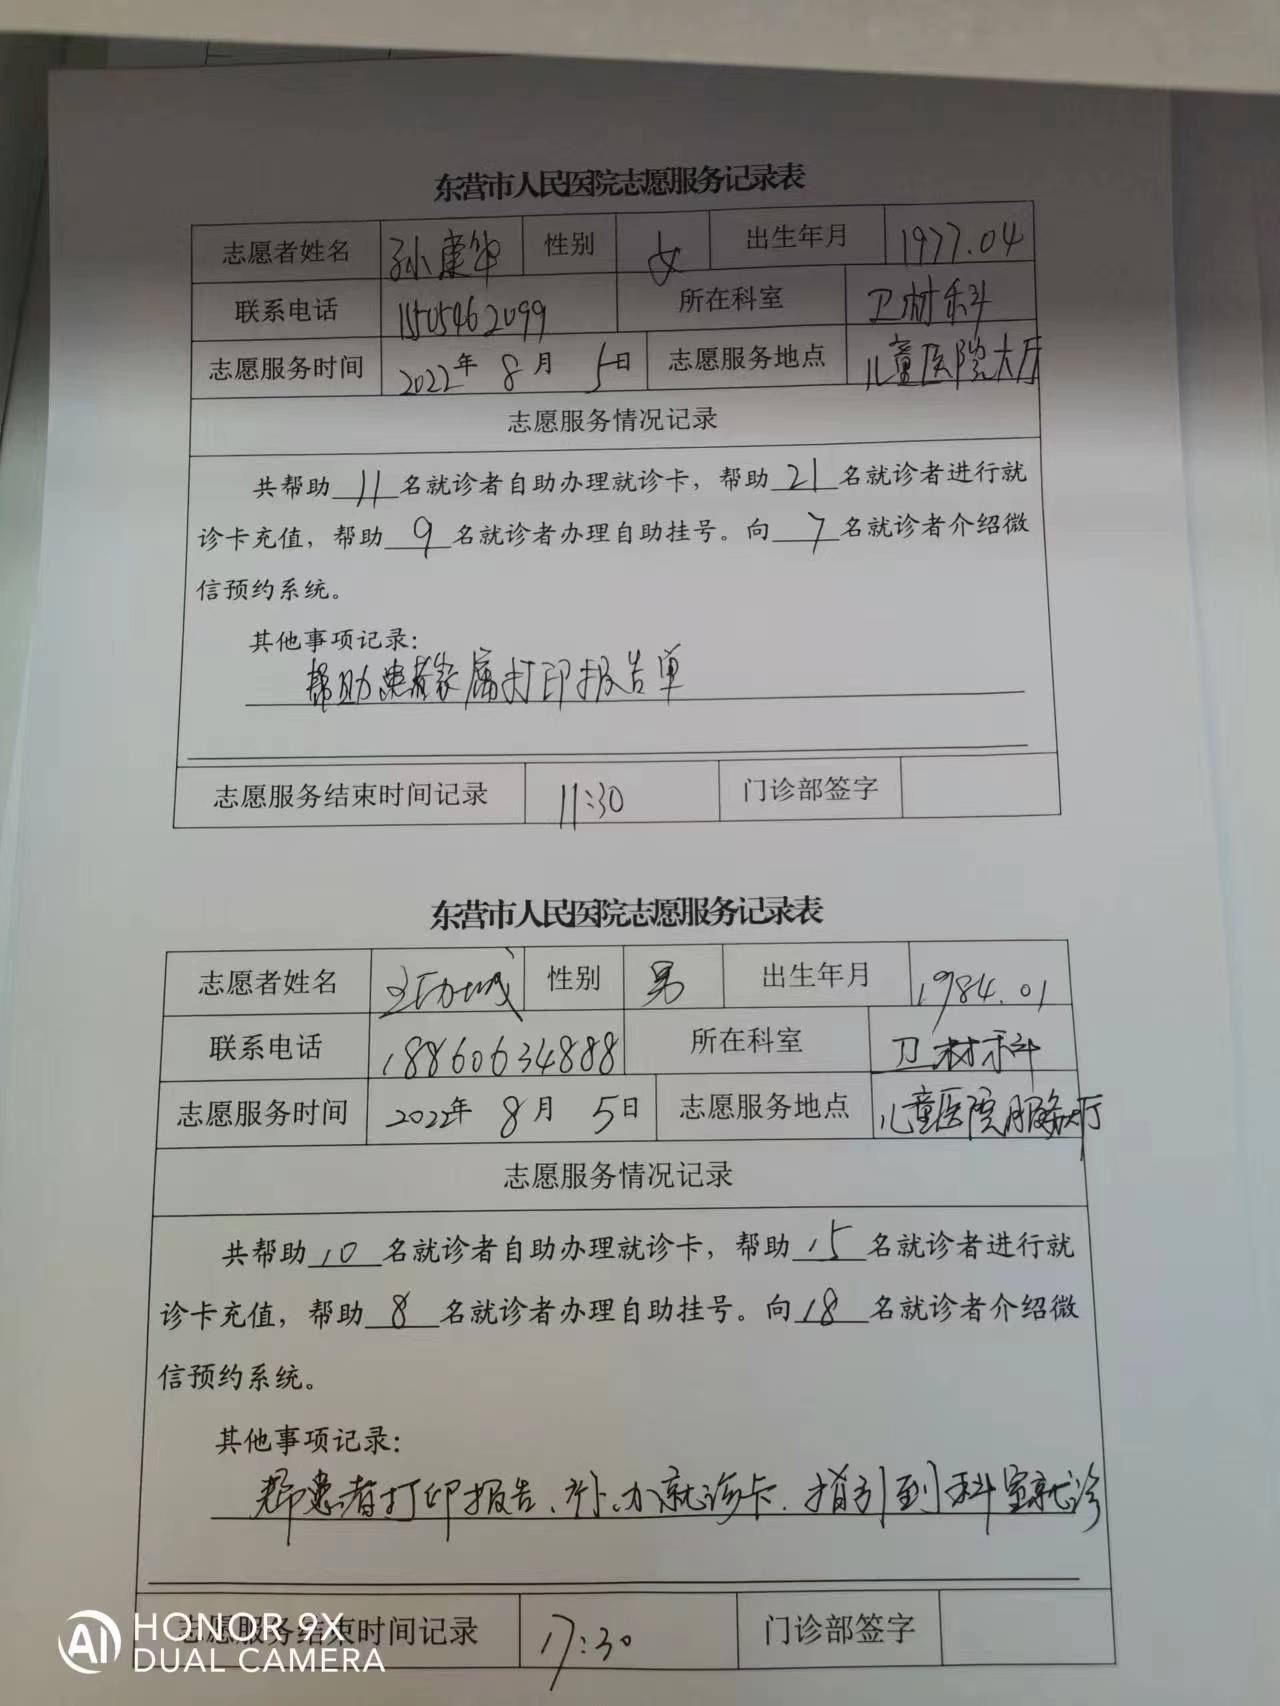 东营市人民医院志愿服务记录表
志愿者姓名 孙建华 性别 女 出生年月 1977.04
联系电话 1505462099 所在科室 卫材科
志愿服务时间 2022年 8月 5日 志愿服务地点 儿童医院大厅
志愿服务情况记录
共帮助 11 名就诊者自助办理就诊卡，帮助 21 名就诊者进行就
诊卡充值，帮助 9 名就诊者办理自助挂号。向 7 名就诊者介绍微
信预约系统。
其他事项记录：
帮助患者家属打印报告单
志愿服务结束时间记录 11:30 门诊部签字
东营市人民医院志愿服务记录表
志愿者姓名 性别 男 出生年月 1984.01
联系电话 18860634888 所在科室 卫材科
志愿服务时间 2022年 8月 5日 志愿服务地点 儿童医院服务大厅
志愿服务情况记录
共帮助 10 名就诊者自助办理就诊卡，帮助 15 名就诊者进行就
诊卡充值，帮助 8 名就诊者办理自助挂号。向 18 名就诊者介绍微
信预约系统。
其他事项记录：
帮患者打印报告、补办就诊卡、指引到科室就诊
志愿服务结束时间记录 17:30 门诊部签字
AI HONOR 9X
DUAL CAMERA